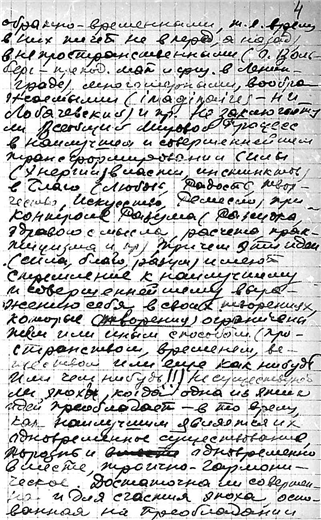 4
обратно-временными, т.е. время
в них течёт не вперед, а назад,
внепространственными (О. Воль-
берг - препод. мат. и физ. в Ленин-
граде), многомерными, вообра-
жаемыми (imaginaires - Н.И.
Лобачевский) и пр. Не заключает
ли Всеобщий Мировой Процесс
в наилучшем и совершеннейшем
трансформировании Силы
(Энергии, власти, инстинкты)
в Благо (Любовь, Радость, Твор-
чество, Искусство, Ремесло) при
контроле Разума (Рассудка
здравого смысла, расчета, прак-
тицизма и пр.) Причем эти идеи
(сила, благо, разум) имеют
стремление к наилучшему
и совершеннейшему выра-
жению себя в своих творениях,
которые (творения) ограничены
тем или иным способом (про-
странством, временем, ве-
ществом или еще как нибудь
или чем нибудь!!) Не существует
ли эпохи, когда одна из этих
идей преобладает - в то время,
как наилучшим является их
одновременное существование,
порознь и одновременно
вместе, троично-гармони-
ческое. Достаточна ли совершен-
на и для счастия эпоха осно-
ванная на преобладании